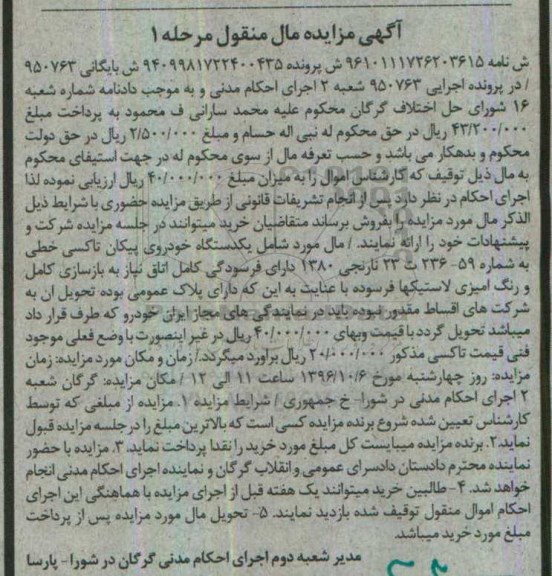 آگهی مزایده مال منقول مرحله ۱
ش نامه ۹۶۱۰۱۱۱۷۲۶۲۰۳۶۱۵ ش پرونده ۹۴۰۹۹۸۱۷۲۲۴۰۰۴۳۵ ش بایگانی ۹۵۰۷۶۳
/ در پرونده اجرایی ۹۵۰۷۶۳ شعبه ۲ اجرای احکام مدنی و به موجب دادنامه شماره شعبه
۱۶ شورای حل اختلاف گرگان محکوم علیه محمد سارانی ف محمود به پرداخت مبلغ
۴۳/۲۰۰/۰۰۰ ریال در حق محکوم له نبی اله حسام و مبلغ ۲/۵۰۰/۰۰۰ ریال در حق دولت
محکوم و بدهکار می باشد و حسب تعرفه مال از سوی محکوم له در جهت استیفای محکوم
به مال ذیل توقیف که کارشناس اموال را به میزان مبلغ ۴۰/۰۰۰/۰۰۰ ریال ارزیابی نموده لذا
اجرای احکام در نظر دارد پس از انجام تشریفات قانونی از طریق مزایده حضوری با شرایط ذیل
الذکر مال مورد مزایده را بفروش برساند متقاضیان خرید میتوانند در جلسه مزایده شرکت و
پیشنهادات خود را ارائه نمایند. / مال مورد شامل یکدستگاه خودروی پیکان تاکسی خطی
به شماره ۵۹- ۲۳۶ ت ۲۳ نارنجی ۱۳۸۰ دارای فرسودگی کامل اتاق نیاز به بازسازی کامل
و رنگ امیزی لاستیکها فرسوده با عنایت به این که دارای پلاک عمومی بوده تحویل ان به
شرکت های اقساط مقدور نبوده باید در نمایندگی های مجاز ایران خودرو که طرف قرار داد
میباشد تحویل گردد با قیمت وبهای ۴۰/۰۰۰/۰۰۰ ریال در غیر اینصورت با وضع فعلی موجود
فنی قیمت تاکسی مذکور ۲۰/۰۰۰/۰۰۰ ریال براورد میگردد. / زمان و مکان مورد مزایده: زمان
مزایده: روز چهارشنبه مورخ ۱۳۹۶/۱۰/۶ ساعت ۱۱ الی ۱۲ / مکان مزایده: گرگان شعبه
۲ اجرای احکام مدنی در شورا- خ جمهوری / شرایط مزایده ۱. مزایده از مبلغی که توسط
کارشناس تعیین شده شروع برنده مزایده کسی است که بالاترین مبلغ را در جلسه مزایده قبول
نماید ۲. برنده مزایده میبایست کل مبلغ مورد خرید را نقدا پرداخت نماید. ۳. مزایده با حضور
نماینده محترم دادستان دادسرای عمومی و انقلاب گرگان و نماینده اجرای احکام مدنی انجام
خواهد شد. ۴- طالبین خرید میتوانند یک هفته قبل از اجرای مزایده با هماهنگی این اجرای
احکام اموال منقول توقیف شده بازدید نمایند. ۵- تحویل مال مورد مزایده پس از پرداخت
مبلغ مورد خرید میباشد.
مدیر شعبه دوم اجرای احکام مدنی گرگان در شورا- پارسا